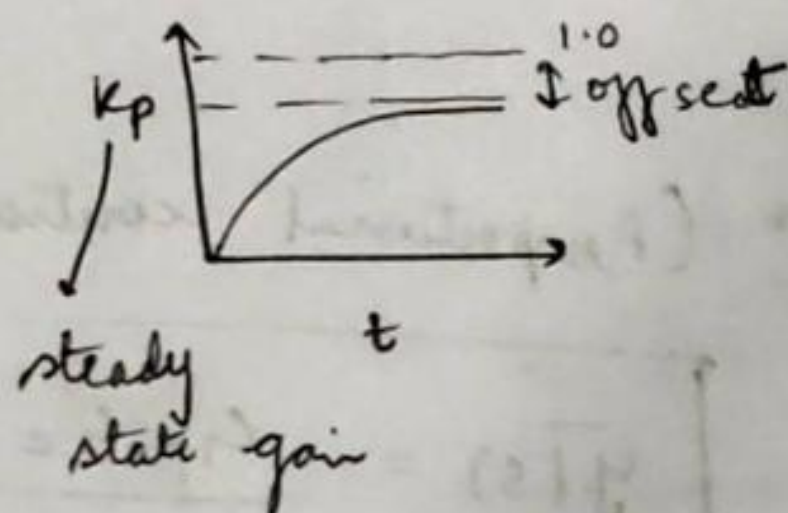 1.0
Kp
offset
t
steady
state gain
y(s) =